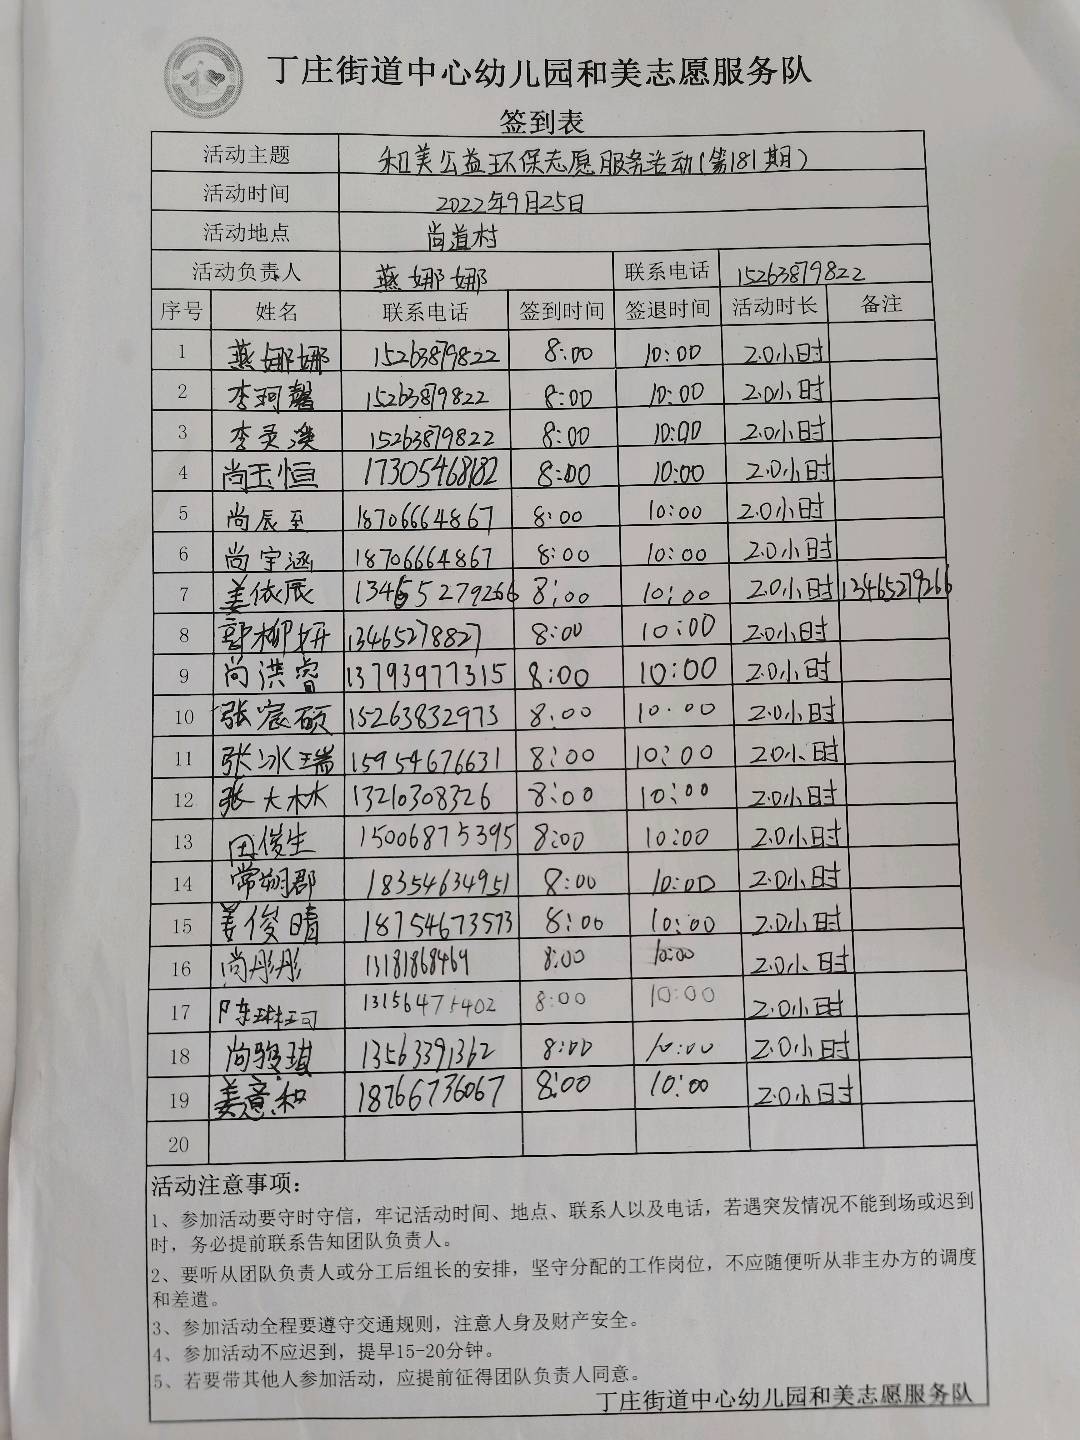 丁庄街道中心幼儿园和美志愿服务队
签到表
活动主题 和美公益环保志愿服务活动(第181期)
活动时间 2022年9月25日
活动地点 尚道村
活动负责人 燕娜娜 联系电话 15263879822
序号 姓名 联系电话 签到时间 签退时间 活动时长 备注
1 燕娜娜 15263879822 8:00 10:00 2.0小时
2 李珂馨 15263879822 8:00 10:00 2.0小时
3 李灵溪 15263879822 8:00 10:00 2.0小时
4 尚玉恒 17305468182 8:00 10:00 2.0小时
5 尚辰至 18706664867 8:00 10:00 2.0小时
6 尚宇涵 18706664867 8:00 10:00 2.0小时
7 姜依辰 8:00 10:00 2.0小时 13465279266
8 郭柳妍 13465278827 8:00 10:00 2.0小时
9 尚洪睿 13793977315 8:00 10:00 2.0小时
10 张宸硕 15263832973 8:00 10:00 2.0小时
11 张冰瑞 15954676631 8:00 10:00 2.0小时
12 张大林 13210308326 8:00 10:00 2.0小时
13 田俊生 15006875395 8:00 10:00 2.0小时
14 常朔郡 18354634951 8:00 10:00 2.0小时
15 姜俊晴 18754673573 8:00 10:00 2.0小时
16 尚彤彤 13181868469 8:00 10:00 2.0小时
17 陈琳珂 13156475402 8:00 10:00 2.0小时
18 尚骏琪 13563391362 8:00 10:00 2.0小时
19 姜意和 18766736067 8:00 10:00 2.0小时
20
活动注意事项：
1、参加活动要守时守信，牢记活动时间、地点、联系人以及电话，若遇突发情况不能到场或迟到
时，务必提前联系告知团队负责人。
2、要听从团队负责人或分工后组长的安排，坚守分配的工作岗位，不应随便听从非主办方的调度
和差遣。
3、参加活动全程要遵守交通规则，注意人身及财产安全。
4、参加活动不应迟到，提早15-20分钟。
5、若要带其他人参加活动，应提前征得团队负责人同意。
丁庄街道中心幼儿园和美志愿服务队